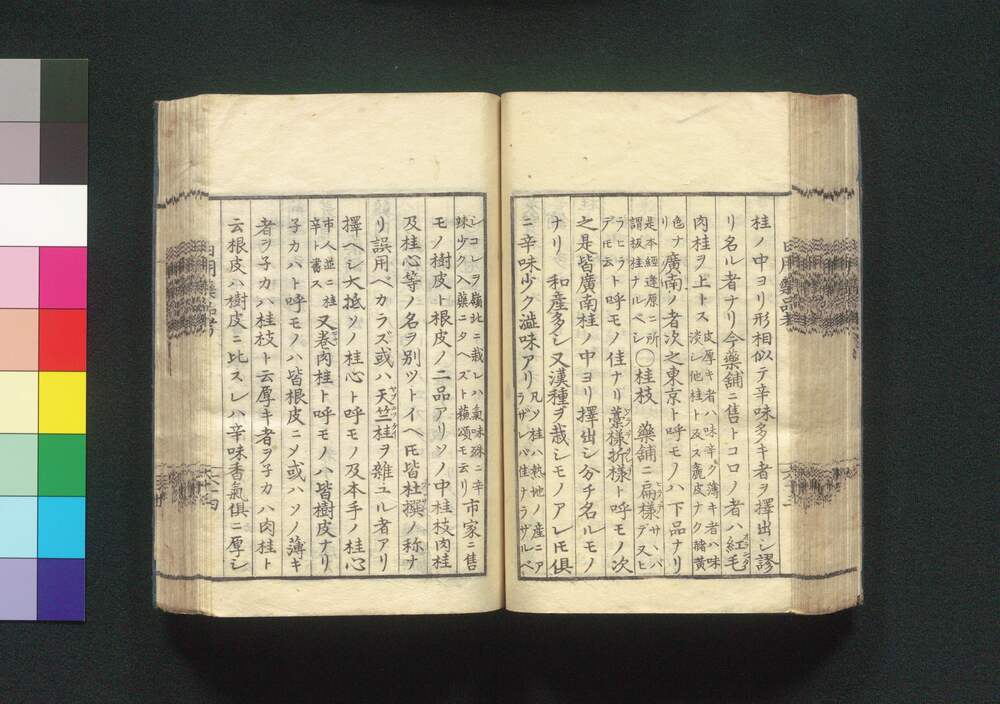 桂ノ中ヨリ形相似テ辛味多キ者ヲ擇出シ謬
リ名ル者ナリ今藥舗ニ售トコロノ者ハ紅毛
肉桂ヲ上トス皮厚キ者ハ味辛ク薄キ者ハ味
淡シ他桂ト及ス麁皮ナク赭黃
色ナリ廣南ノ者次之東京ト呼モノハ下品ナリ
是本經逢原ニ所
謂板桂ナルベシ〇桂枝 藥舗ニ扁樣ヒラデサハバ
デ又ヒラヒラトモ云ト呼モノ佳ナリ藁樣折樣ト呼モノ次
之是皆廣南桂ノ中ヨリ擇出シ分チ名ルモノ
ナリ 和産多シ又漢種ヲ栽シモノアレㇳモ俱
ニ辛味少ク澁味アリ凡ソ桂ハ熱地ノ産ニア
ラザレバ佳ナラザルベ
シコレヲ嶺北ニ栽レハ氣味殊ニ辛
辣少ク入藥ニタヘズト蘓頌モ云リ市家ニ售
モノ樹皮ト根皮ノ二品アリソノ中桂枝肉桂
及桂心等ノ名ヲ別ツトイヘㇳモ皆杜撰ノ称ナ
リ誤用ベカラズ或ハ天竺桂ヲ雜ユル者アリ
擇ヘシ大抵ソノ桂心ト呼モノ及本手ノ桂心
市人並ニ桂
辛ト書ス又巻肉桂ト呼モノハ皆樹皮ナリ
子カハト呼モノハ皆根皮ニメ或ハソノ薄キ
者ヲ子カハ桂枝ト云厚キ者ヲ子カハ肉桂ト
云根皮ハ樹皮ニ比スレハ辛味香氣俱ニ厚シ